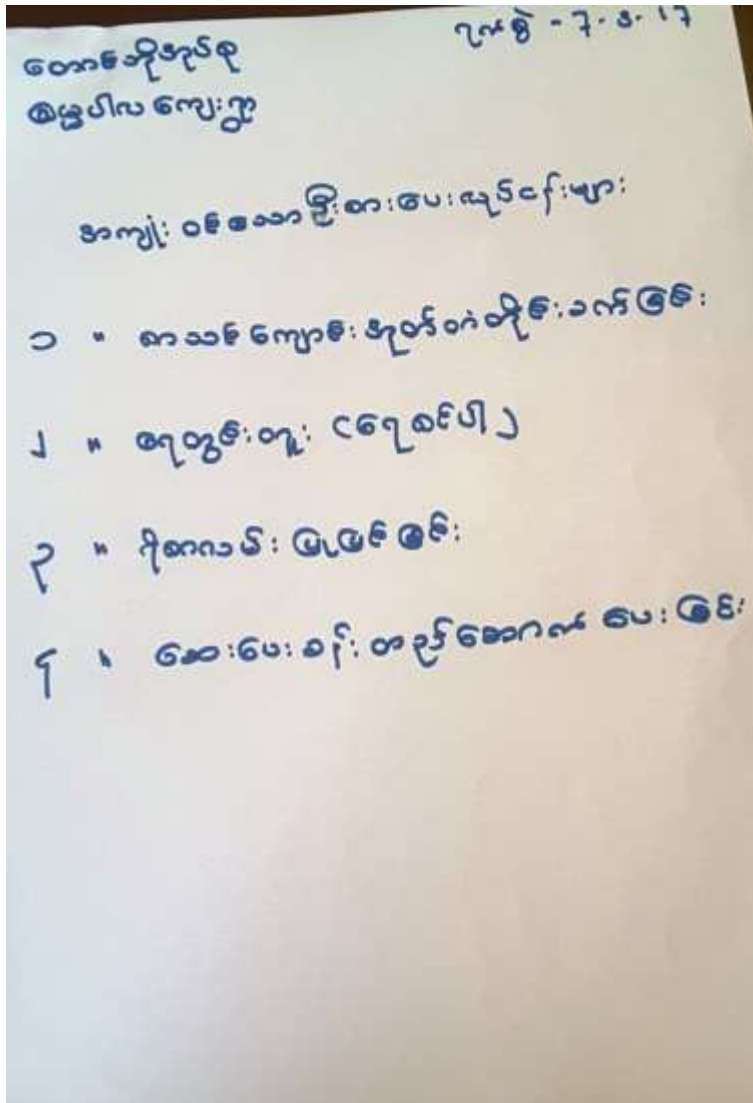 ရက်စွဲ - 7. 3. 17
တောင်ဘိုအုပ်စု
ကျေးရွာ
အကျုံးဝင်သော ဦးစားပေးလုပ်ငန်းများ
၁ ။ စာသင်ကျောင်း အုတ်တံတိုင်းခတ်ခြင်း
၂ ။ ရေတွင်းတူး (ရေစင်ပါ)
၃ ။ ရိုစာလမ်း ပြုပြင်ခြင်း
၄ ။ ဆေးပေးခန်း တည်ဆောက် ပေးခြင်း